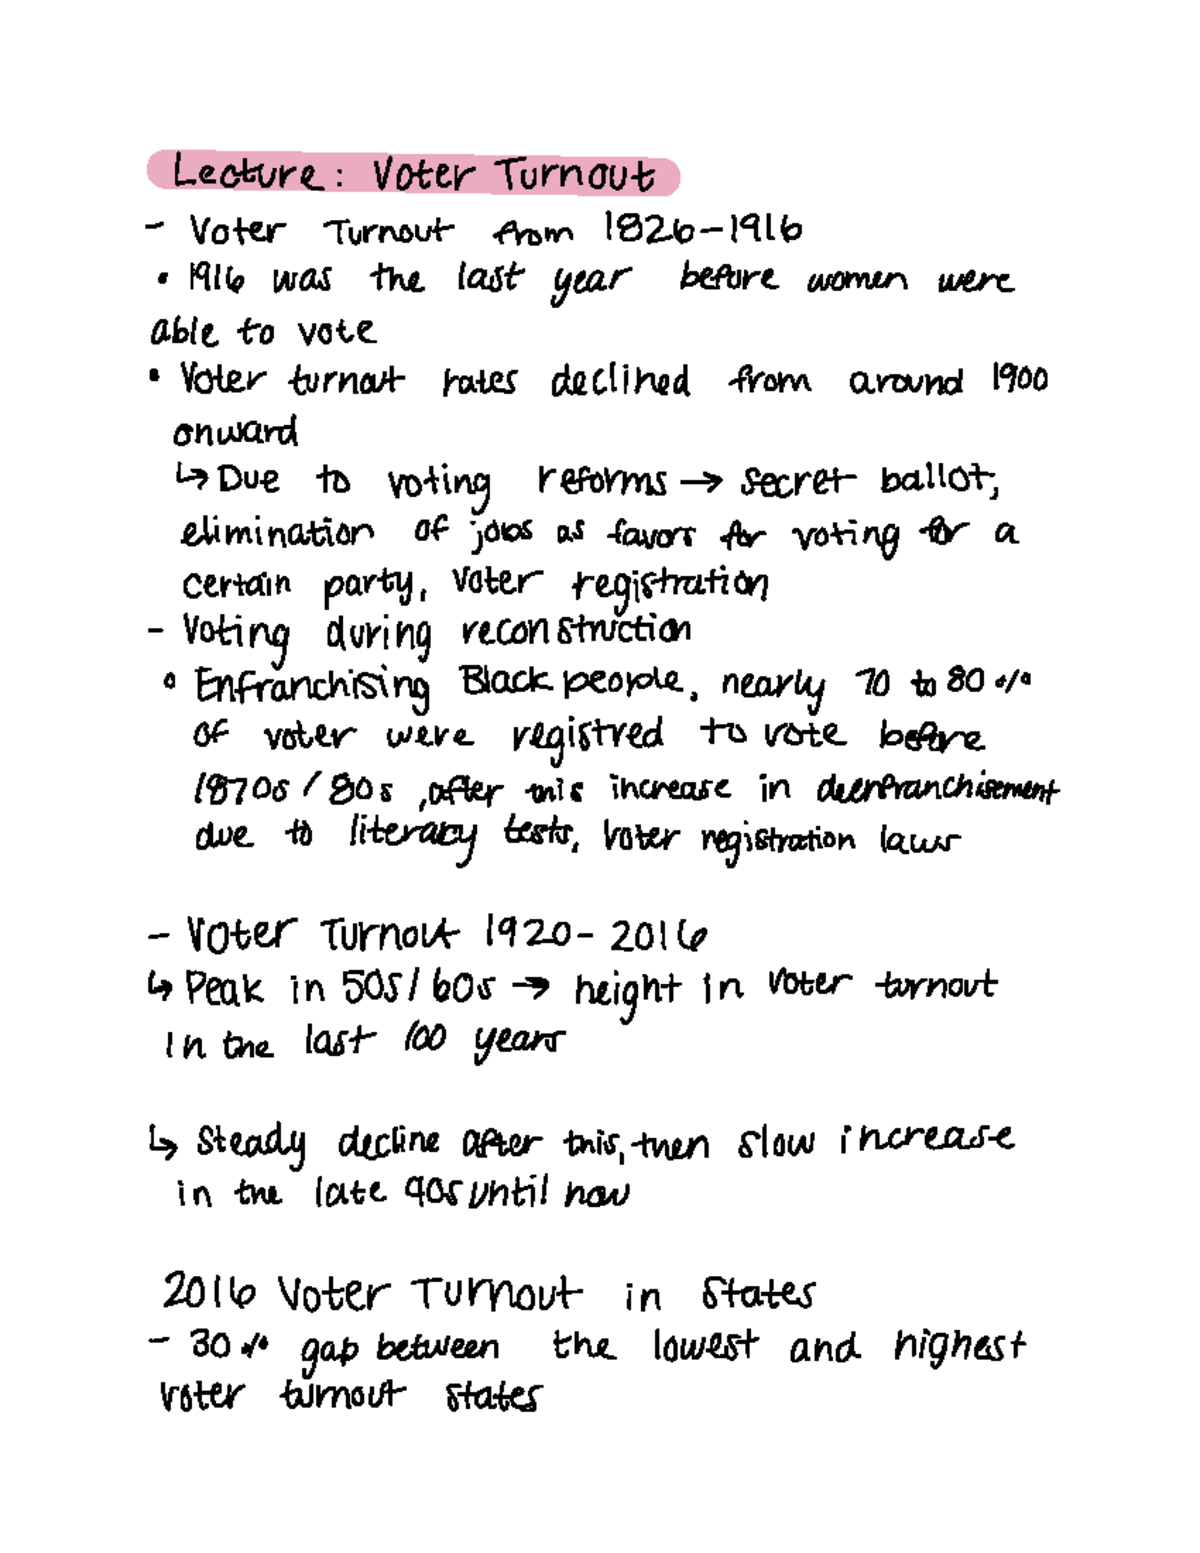 Lecture: Voter Turnout
- Voter Turnout from 1826-1916
• 1916 was the last year before women were
able to vote
• Voter turnout rates declined from around 1900
onward
↳ Due to voting reforms → secret ballot,
elimination of jobs as favors for voting for a
certain party, voter registration
- Voting during reconstruction
• Enfranchising Black people, nearly 70 to 80%
of voter were registred to vote before
1870s / 80s, after this increase in deenfranchisement
due to literacy tests, voter registration laws
- Voter Turnout 1920-2016
↳ Peak in 50s/60s → height in voter turnout
in the last 100 years
↳ Steady decline after this, then slow increase
in the late 90s until now
2016 Voter Turnout in States
- 30% gap between the lowest and highest
voter turnout states